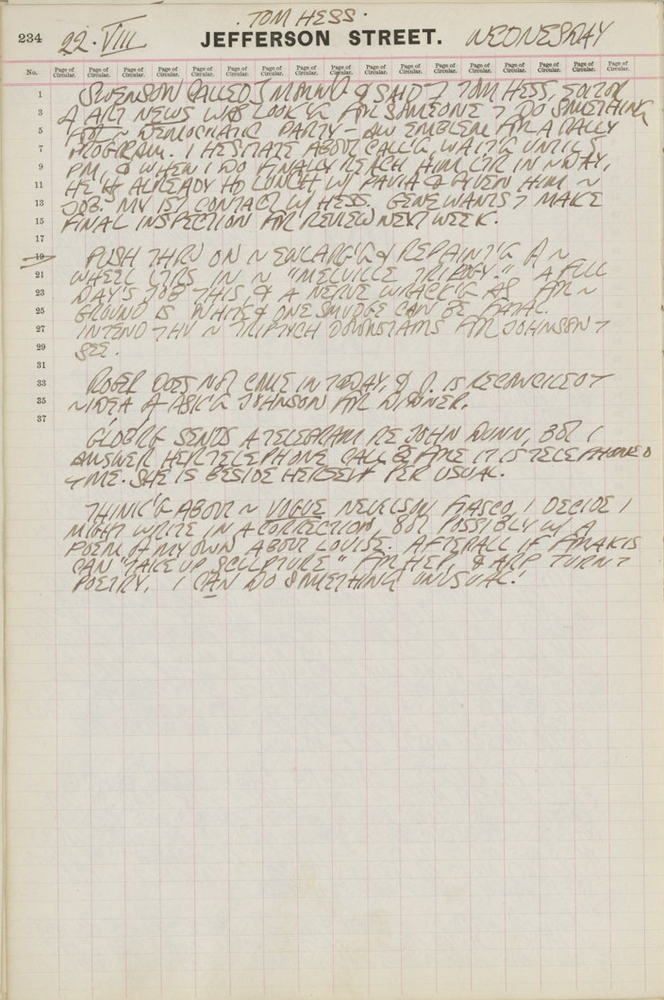 · TOM HESS ·
234 22·VIII JEFFERSON STREET. WEDNESDAY
No. Page of Circular. Page of Circular. Page of Circular. Page of Circular. Page of Circular. Page of Circular. Page of Circular. Page of Circular. Page of Circular. Page of Circular. Page of Circular. Page of Circular. Page of Circular. Page of Circular. Page of Circular. Page of Circular. Page of Circular.
1 SWENSON CALLED & SAID TOM HESS, EDITOR
3 ART NEWS WAS LOOK'G FOR SOMEONE TO DO SOMETHING
5 FOR ~ DEMOCRATIC PARTY – AN EMBLEM FOR A RALLY
7 PROGRAM. I HESITATE ABOUT CALL'G, WAIT'G UNTIL 5
9 PM, & WHEN I DO FINALLY REACH HIM L'TR IN ~ DAY,
11 HE'D ALREADY HD LUNCH W/ PAVIA & GIVEN HIM ~
13 JOB. MY 1ST CONTACT W/ HESS. GENE WANTS T MAKE
15 FINAL INSPECTION FOR REVIEW NEXT WEEK.
17
19 PUSH THRU ON ~ ENLARG'G & REPAINT'G ~
21 WHEEL L'TRS IN ~ "MELVILLE TRIPTYCH." A FULL
23 DAY'S JOB THIS, & A NERVE WRACK'G AS FOR ~
25 GROUND IS WHITE & ONE SMUDGE CAN BE FATAL.
27 INTEND HAV ~ TRIPTYCH DOWNSTAIRS FOR JOHNSON T
29 SEE.
31
33 ROBERT DOES NOT COME IN TODAY, & IS RECONCILED T
35 ~ IDEA ASK'G JOHNSON FOR DINNER.
37
SENDS A TELEGRAM RE JOHN DUNN, BUT I
ANSWER HER TELEPHONE CALL BEFORE IT IS TELEPHONED
T ME. SHE IS BESIDE HERSELF PER USUAL.
THINK'G ABOUT ~ VOGUE NEVELSON FIASCO, I DECIDE I
MIGHT WRITE IN A CORRECTION, BUT POSSIBLY W/ A
POEM OF MY OWN ABOUT LOUISE. AFTERALL IF
CAN "TAKE UP SCULPTURE" FOR HER, & ARP TURN T
POETRY, I CAN DO SOMETHING UNUSUAL!